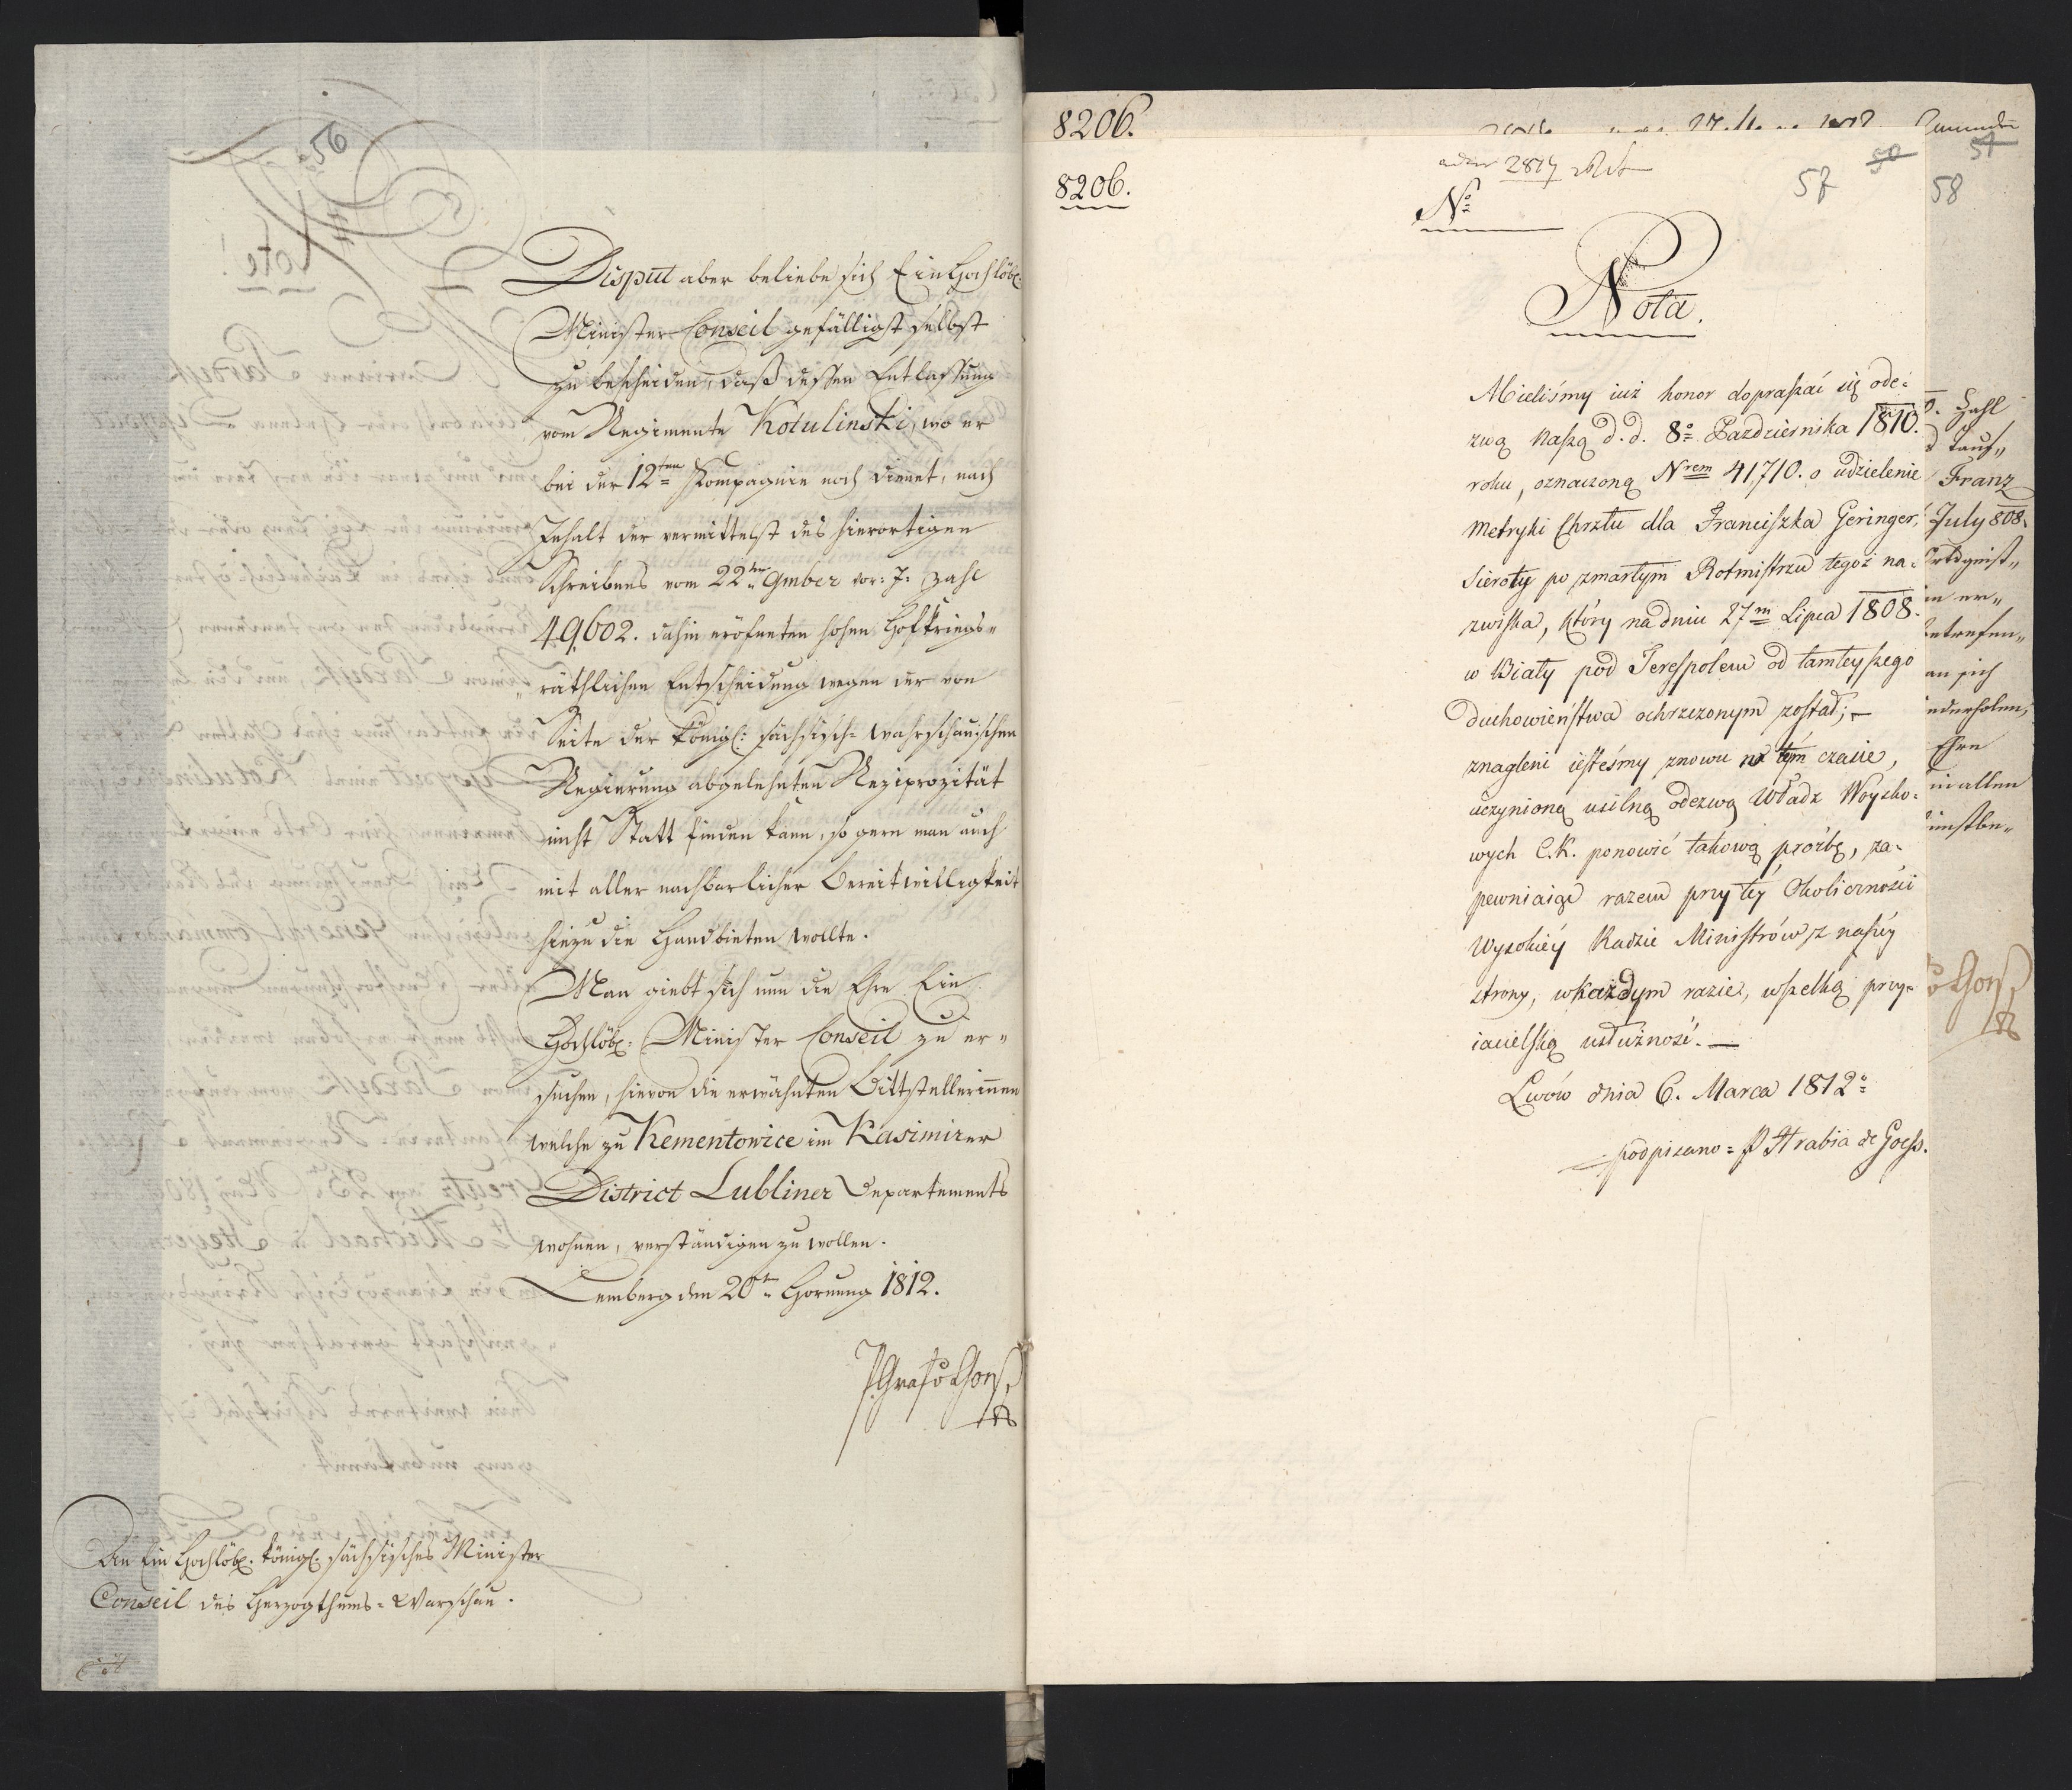 56
Disput aber beliebe sich Ein Hochlöbl:
Minister Conseil gefälligst selbst
zu bescheiden, daß dessen Entlassung
vom Regimente Kotulinski, wo er
bei der 12ten Kompagnie noch dienet, nach
Inhalt der vermittelst des hierortigen
Schreibens vom 22ten 9mber vor: J: Zahl
49,602. dahin eröfneten hohen Hofkriegs-
räthlichen Entscheidung wegen der von
Seite der königl: sächsisch-warschauischen
Regierung abgelehnten Reziprozität
nicht Statt finden kann, so gern man auch
mit aller nachbarlicher Bereitwilligkeit
hiezu die Hand bieten wollte.
Man giebt sich nun die Ehre Ein
Hochlöbl: Minister Conseil zu er-
suchen, hievon die erwähnten Bittstellerinnen
welche zu Kementowice im Kasimirer
District Lubliner Departements
wohnen, verständigen zu wollen.
Lemberg den 20ten Hornung 1812.
P. Graf v Goess
An Ein Hochlöbl. königl. sächsisches Minister
Conseil des Herzogthums-Warschau.
8206.
8206.
2817
No
50
57
Nota.
Mieliśmy iuż honor dopraszać się ode-
zwą naszą d. d. 8o Pazdziernika 1810.
roku, oznaczoną Nrem 41,710. o udzielenie
Metryki Chrztu dla Franciszka Geringer,
Sieroty po zmarłym Rotmistrzu tegoż na-
zwiska, który na dniu 27m Lipca 1808.
w Biały pod Terespolem od tamteyszego
duchowieństwa ochrzczonym został; —
znagleni iesteśmy znowu na tém czasie,
uczynioną usilną odezwą Władz Woysko-
wych C. K. ponowić takową prośbę, za-
pewniaiąc razem przy téy Okoliczności
Wysokiéy Radzie Ministrów z naszéy
strony, w każdym razie, wszelką przy-
iacielską usłużność. —
Lwów dnia 6. Marca 1812o
podpisano = P Hrabia de Goess.
51
58
Zahl
Tauf-
Franz
July 808.
in er-
betrefen-
an sich
iederholen,
Ehre
in allen
v Goess